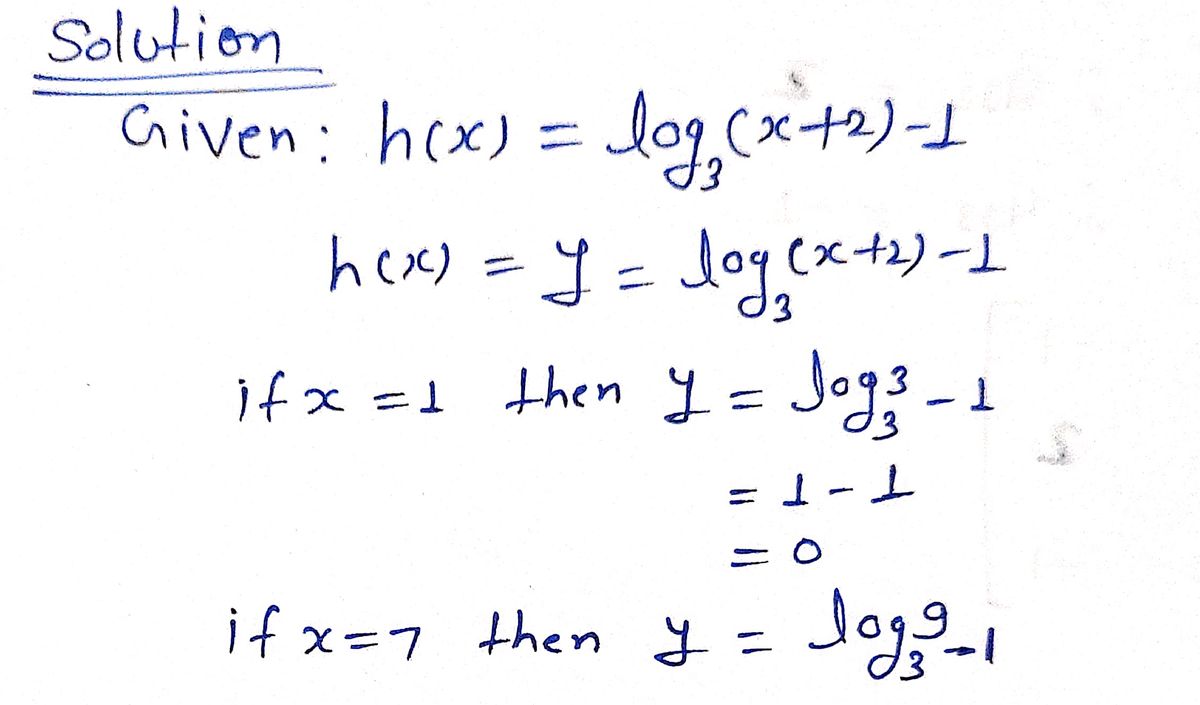 Solution
Given: h(x) = log₃(x+2)-1
h(x) = y = log₃(x+2)-1
if x = 1 then y = log₃3 - 1
= 1 - 1
= 0
if x = 7 then y = log₃9 - 1